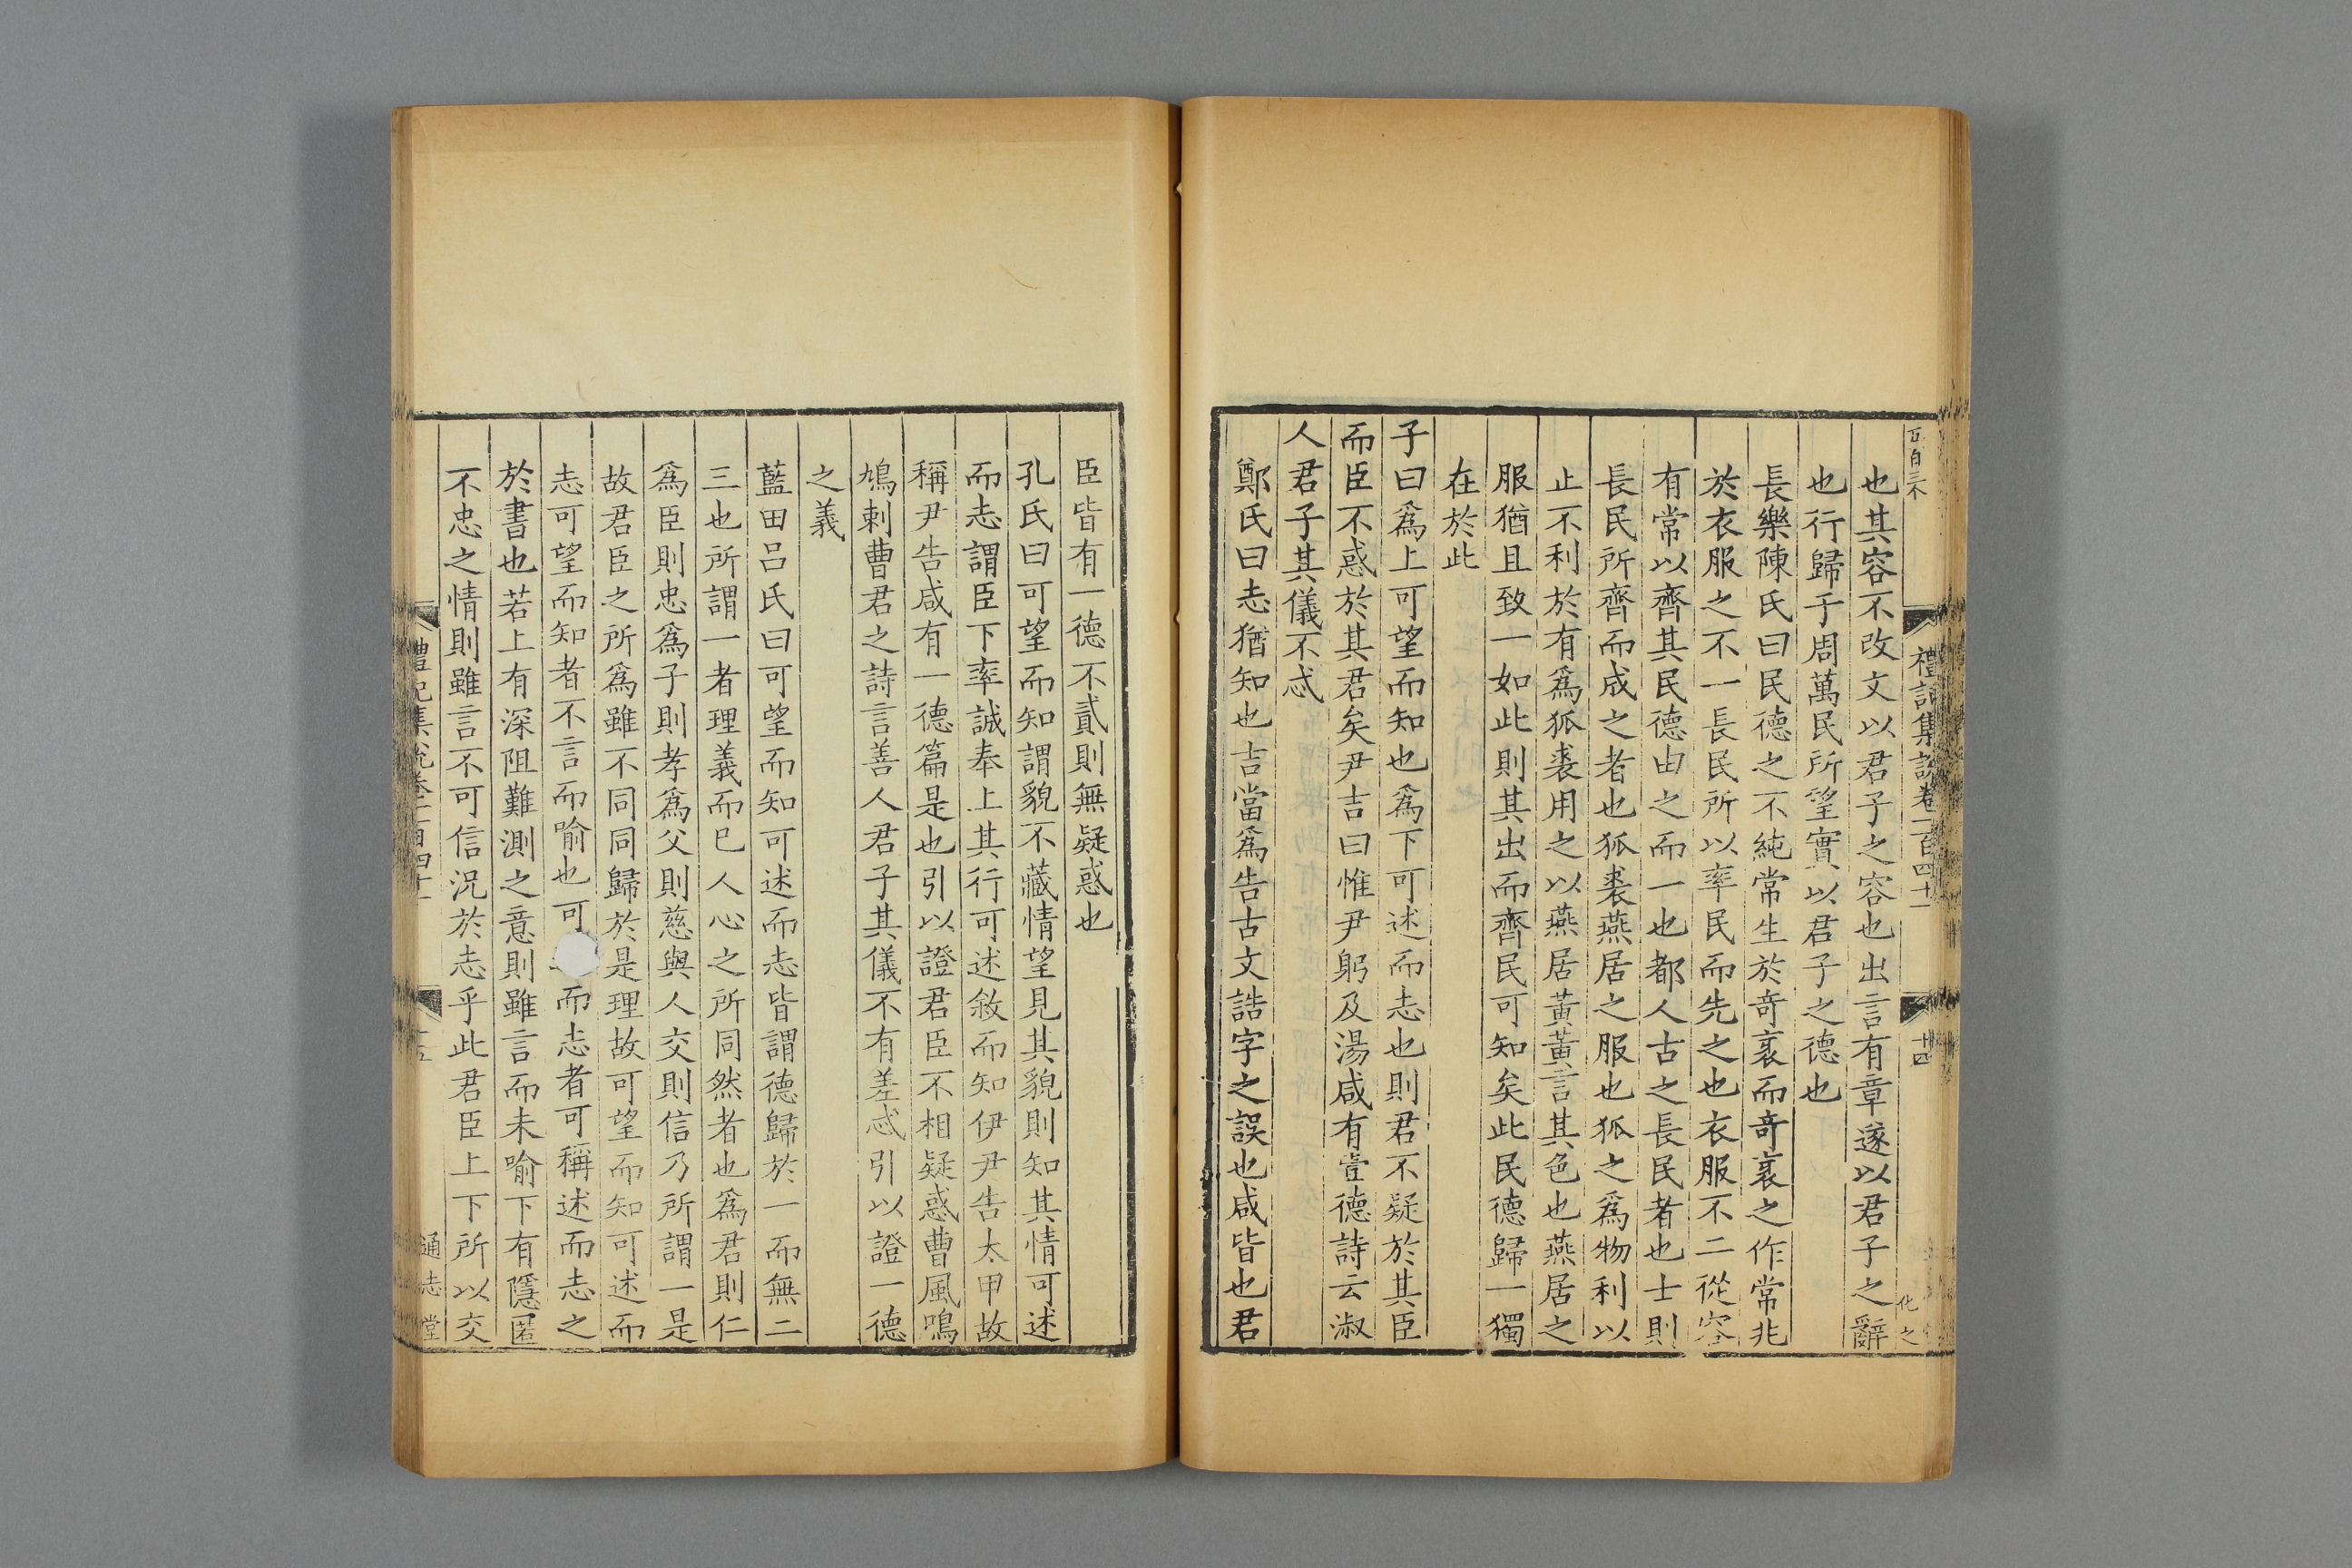 禮記集說卷一百四十一
廿四
也其容不改文以君子之容也出言有章遂以君子之辭
也行歸于周萬民所望實以君子之德也
長樂陳氏曰民德之不純常生於竒衺而竒衺之作常兆
於衣服之不一長民所以率民而先之也衣服不二從容
有常以齊其民德由之而一也都人古之長民者也士則
長民所齊而成之者也狐裘燕居之服也狐之爲物利以
止不利於有爲狐裘用之以燕居黃黃言其色也燕居之
服猶且致一如此則其出而齊民可知矣此民德歸一獨
在於此
子曰爲上可望而知也爲下可述而志也則君不疑於其臣
而臣不惑於其君矣尹吉曰惟尹躬及湯咸有壹德詩云淑
人君子其儀不忒
鄭氏曰志猶知也吉當爲告古文誥字之誤也咸皆也君
臣皆有一德不貳則無疑惑也
孔氏曰可望而知謂貌不藏情望見其貌則知其情可述
而志謂臣下率誠奉上其行可述敘而知伊尹告太甲故
稱尹告咸有一德篇是也引以證君臣不相疑惑曹風鳴
鳩刺曹君之詩言善人君子其儀不有差忒引以證一德
之義
藍田呂氏曰可望而知可述而志皆謂德歸於一而無二
三也所謂一者理義而已人心之所同然者也爲君則仁
爲臣則忠爲子則孝爲父則慈與人交則信乃所謂一是
故君臣之所爲雖不同同歸於是理故可望而知可述而
志可望而知者不言而喻也可而志者可稱述而志之
於書也若上有深阻難測之意則雖言而未喻下有隱匿
不忠之情則雖言不可信況於志乎此君臣上下所以交
禮記集說卷一百四十一
通志堂